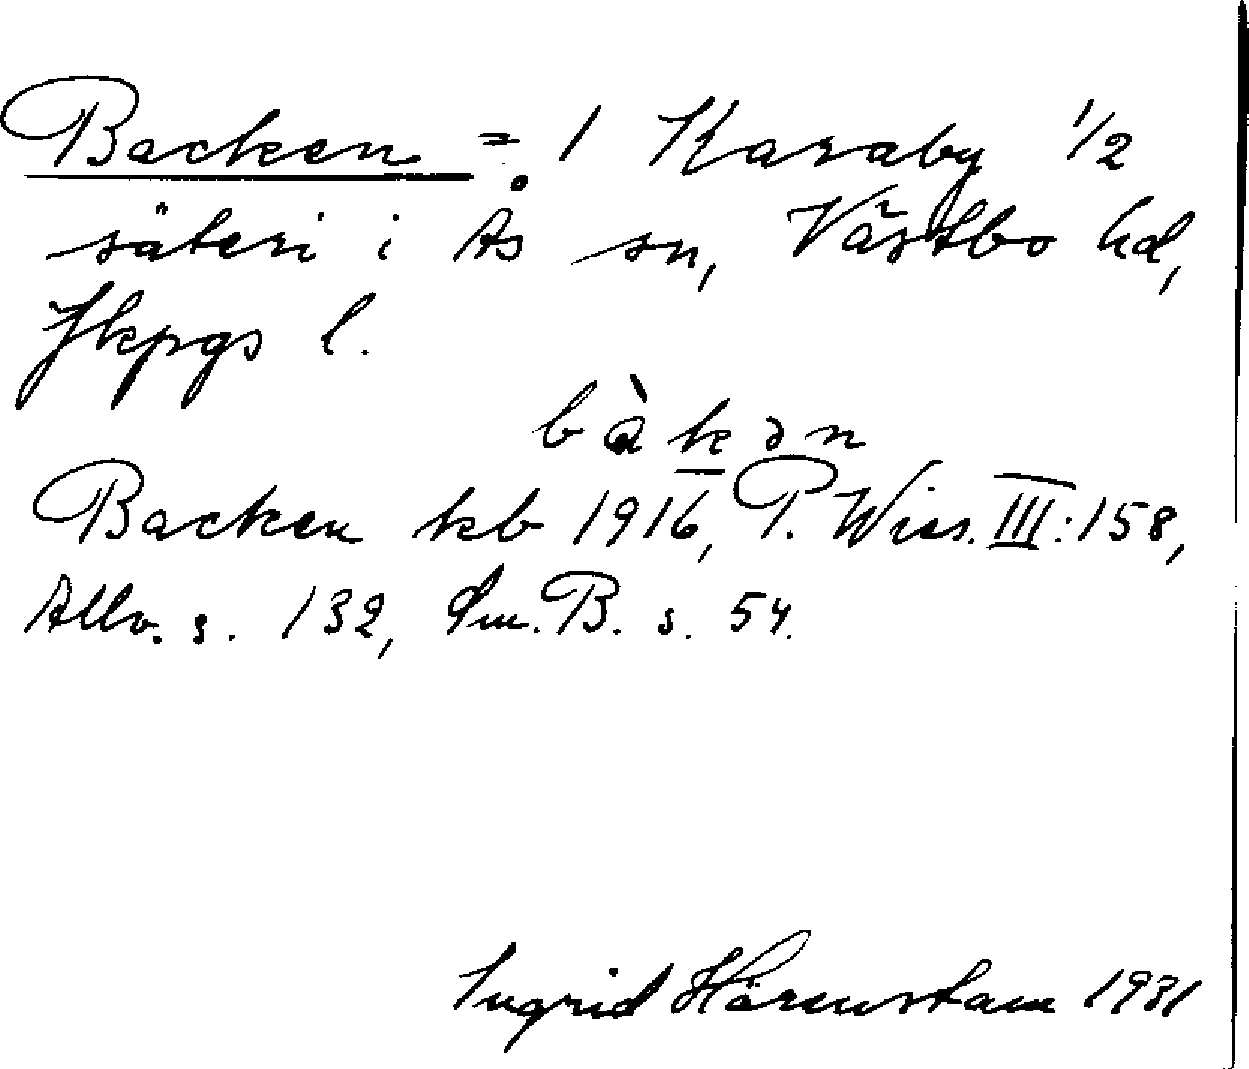 Backen = 1 Karaby 1/2
säteri i Ås sn, Västbo hd,
Jkpgs l.
bàkən
Backen kb 1916, P. Wies. III:158,
Allv. s. 132, Sm. B. s. 54.
Ingrid Härenstam 1931